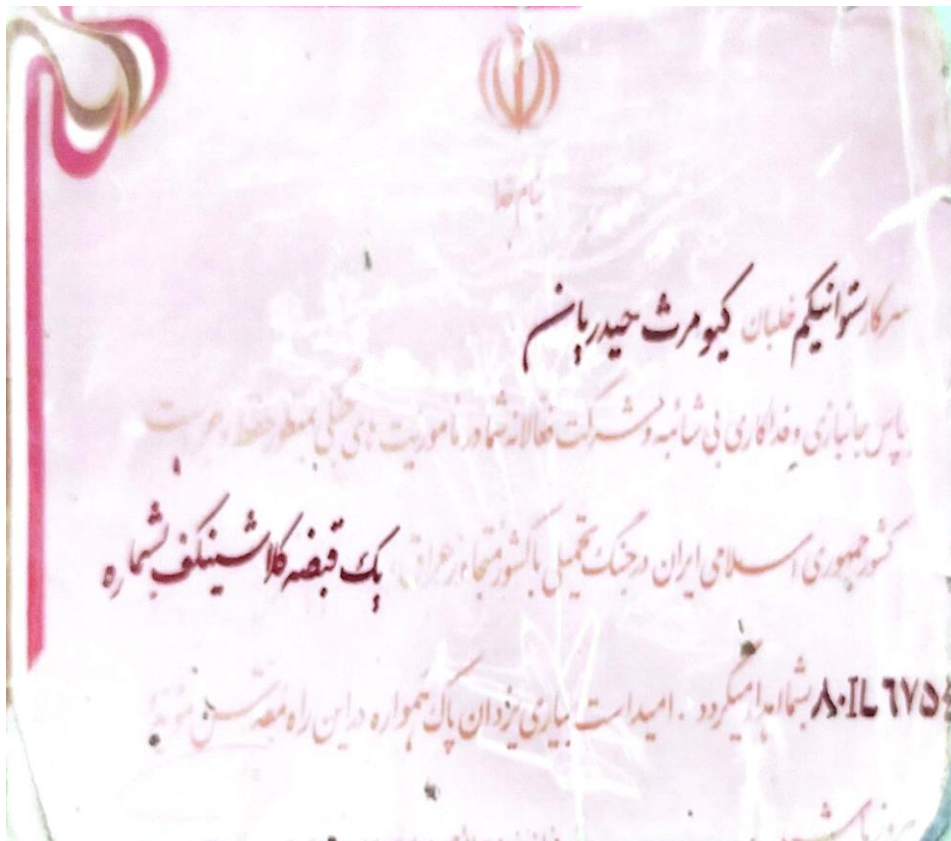 بنام خدا
سرکار ستوانیکم خلبان کیومرث حیدریان
بپاس جانبازی و فداکاری بی شائبه و شرکت فعالانه شما در ماموریت های جنگی بمنظور حفظ و حراست
کشور جمهوری اسلامی ایران در جنگ تحمیلی با کشور متجاوز عراق یک قبضه کلاشینکف بشماره
۸۰IL۶۷۵ بشما اهدا میگردد . امید است بیاری یزدان پاک همواره در این راه مقدس